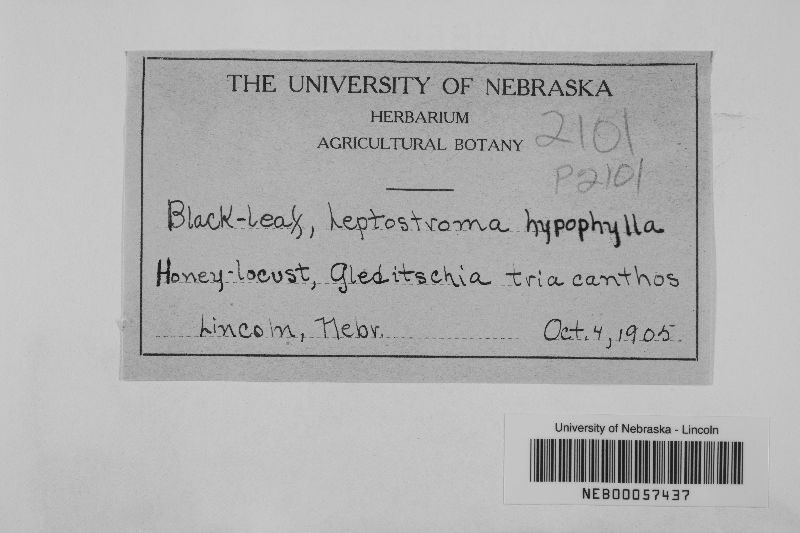 THE UNIVERSITY OF NEBRASKA
HERBARIUM
AGRICULTURAL BOTANY
2101
P2101
Black-leaf, Leptostroma hypophylla
Honey-locust, Gleditschia triacanthos
Lincoln, Nebr. Oct. 4, 1905.
University of Nebraska - Lincoln
NEB00057437